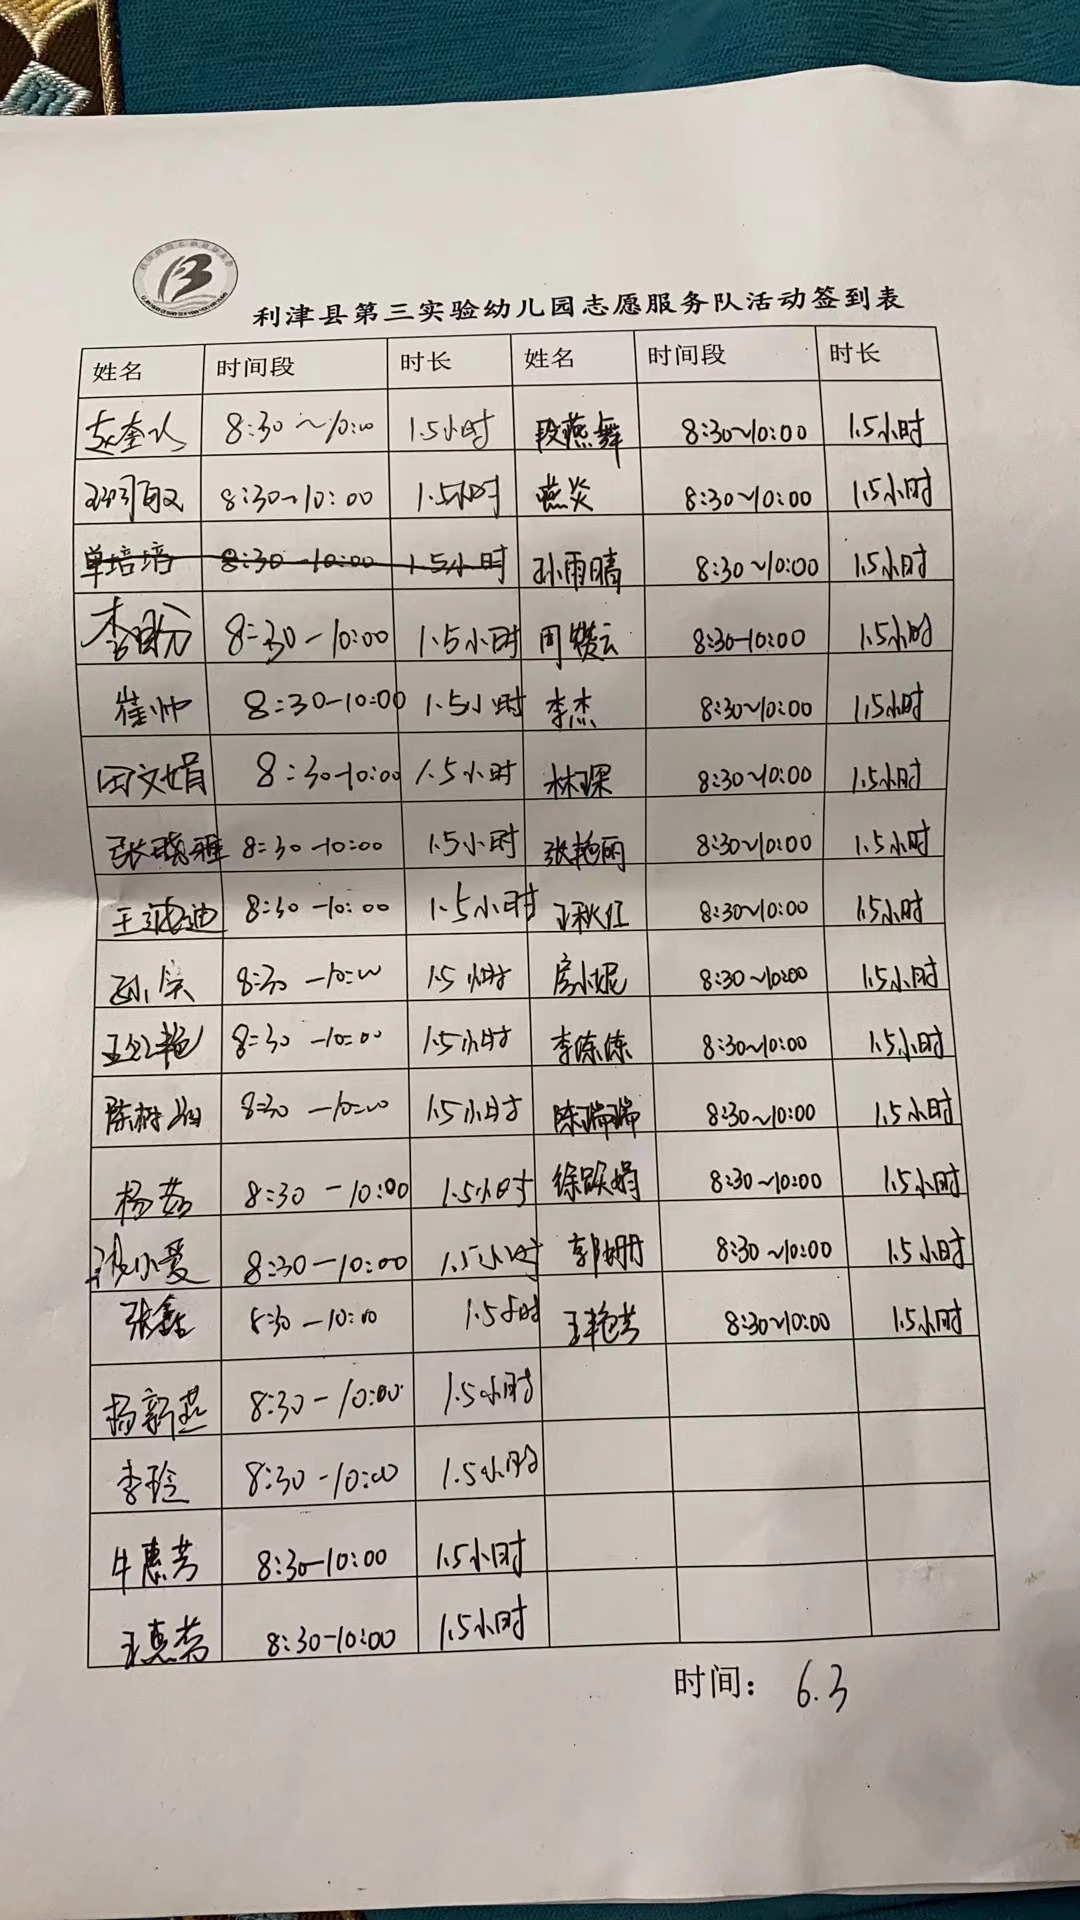 利津县第三实验幼儿园志愿服务队活动签到表
姓名 时间段 时长 姓名 时间段 时长
8:30~10:00 1.5小时 段燕舞 8:30~10:00 1.5小时
8:30-10:00 1.5小时 燕炎 8:30~10:00 1.5小时
单培培 8:30-10:00 1.5小时 孙雨晴 8:30~10:00 1.5小时
李盼 8:30-10:00 1.5小时 8:30-10:00 1.5小时
崔帅 8:30-10:00 1.5小时 李杰 8:30~10:00 1.5小时
田文娟 8:30-10:00 1.5小时 林琛 8:30~10:00 1.5小时
张晓雅 8:30-10:00 1.5小时 张艳丽 8:30~10:00 1.5小时
8:30-10:00 1.5小时 王秋红 8:30~10:00 1.5小时
8:30-10:00 1.5小时 房小妮 8:30~10:00 1.5小时
王红艳 8:30-10:00 1.5小时 李陈陈 8:30~10:00 1.5小时
8:30-10:00 1.5小时 陈瑞瑞 8:30~10:00 1.5小时
杨茹 8:30-10:00 1.5小时 8:30~10:00 1.5小时
8:30-10:00 1.5小时 郭珊珊 8:30~10:00 1.5小时
张鑫 8:30-10:00 1.5小时 王艳芳 8:30~10:00 1.5小时
杨新燕 8:30-10:00 1.5小时
李玲 8:30-10:00 1.5小时
牛惠芳 8:30-10:00 1.5小时
王惠芳 8:30-10:00 1.5小时
时间： 6.3